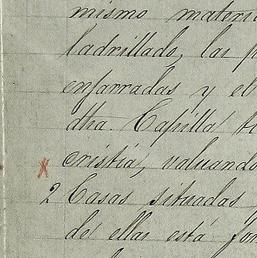 mismo materi
ladrillado, las p
enjarradas y el
dha. Capilla ti
cristia, valuando
2 Casas situadas
de ellas está for